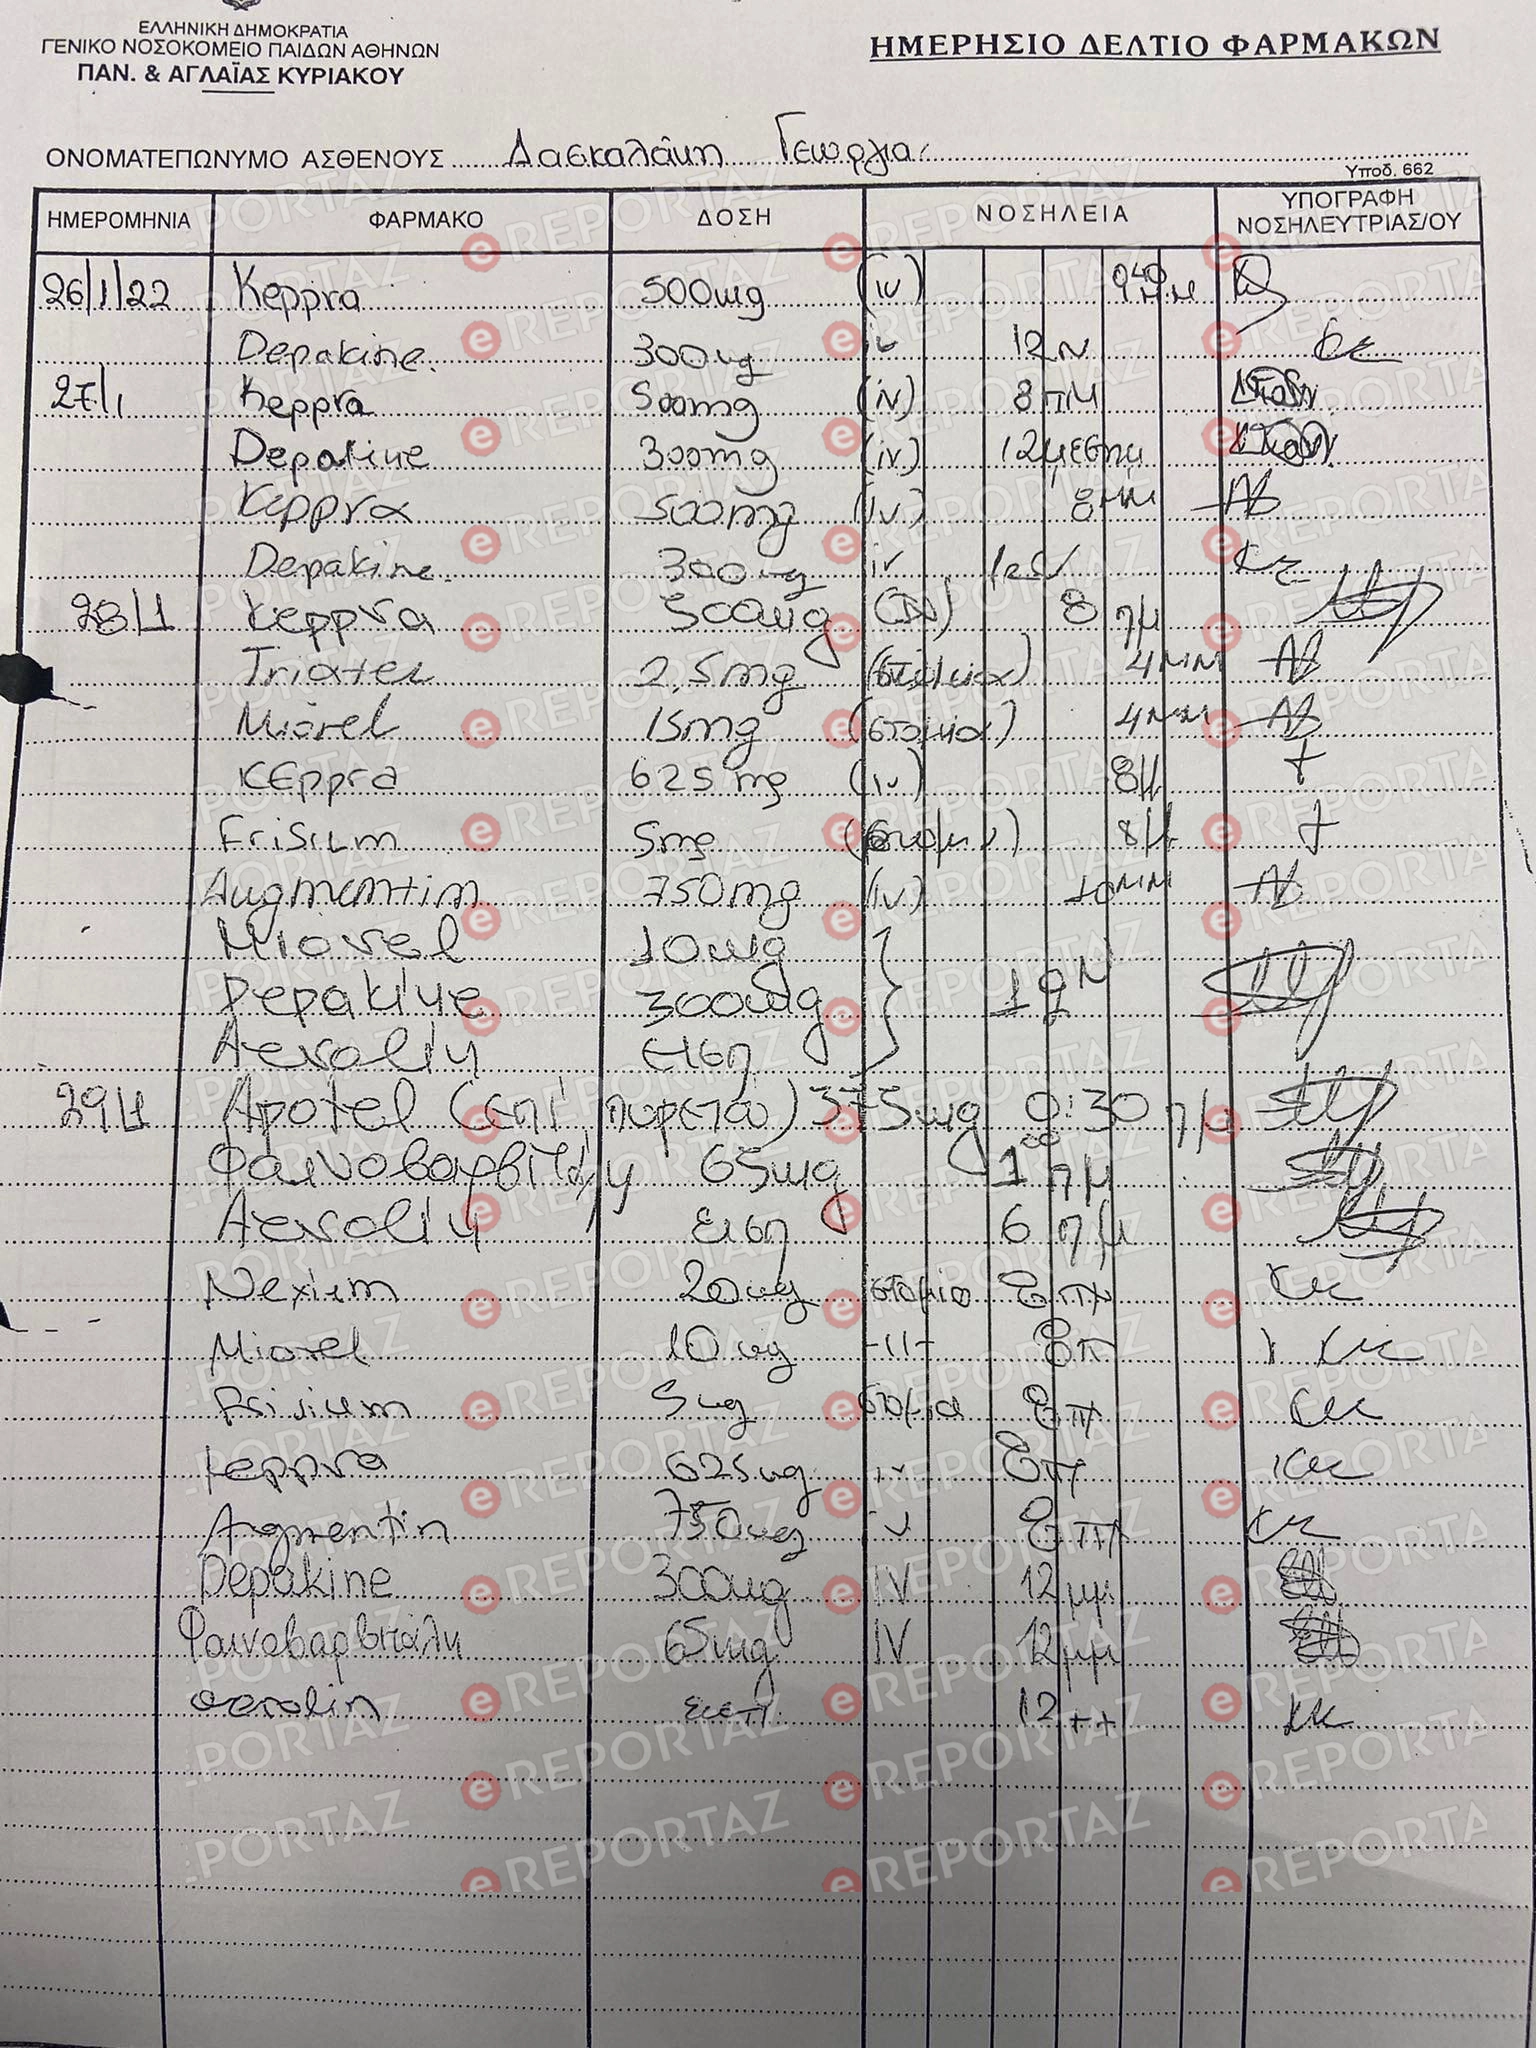 ΕΛΛΗΝΙΚΗ ΔΗΜΟΚΡΑΤΙΑ
ΓΕΝΙΚΟ ΝΟΣΟΚΟΜΕΙΟ ΠΑΙΔΩΝ ΑΘΗΝΩΝ
ΠΑΝ. & ΑΓΛΑΪΑΣ ΚΥΡΙΑΚΟΥ
ΗΜΕΡΗΣΙΟ ΔΕΛΤΙΟ ΦΑΡΜΑΚΩΝ
ΟΝΟΜΑΤΕΠΩΝΥΜΟ ΑΣΘΕΝΟΥΣ Δασκαλάκη Γεωργία
Υποδ. 662
ΗΜΕΡΟΜΗΝΙΑ ΦΑΡΜΑΚΟ ΔΟΣΗ ΝΟΣΗΛΕΙΑ ΥΠΟΓΡΑΦΗ ΝΟΣΗΛΕΥΤΡΙΑΣ/ΟΥ
26/1/22 Keppra 500mg (iv)
Depakine 300mg iv 12
27/1 Keppra 500mg (iv) 8πμ
Depakine 300mg (iv) 12μεσημ
Keppra 500mg (iv) 8μμ
Depakine 300mg iv
28/1 Keppra 500mg (IV) 8 πμ
Triatec 2,5mg 4μμ
Miorel 15mg (στομα) 4μμ
KEppra 625mg (iv) 8μ
Frisium 5mg 8μ
Augmentin 750mg (iv) 10μμ
Miorel 10mg
Depakine 300mg
Aerolin εισπ
29/1 Apotel (επί πυρετού) 375mg 0:30 πμ
Φαινοβαρβιτάλη 65mg 1⁰⁰ πμ
Aerolin εισπ 6 πμ
Nexium 20mg
Miorel 10mg -//-
Frisium 5mg
Keppra 625mg iv
Agmentin 750mg iv
Depakine 300mg IV 12μμ
Φαινοβαρβιτάλη 65mg IV 12μμ
aerolin 12
eREPORTAZ